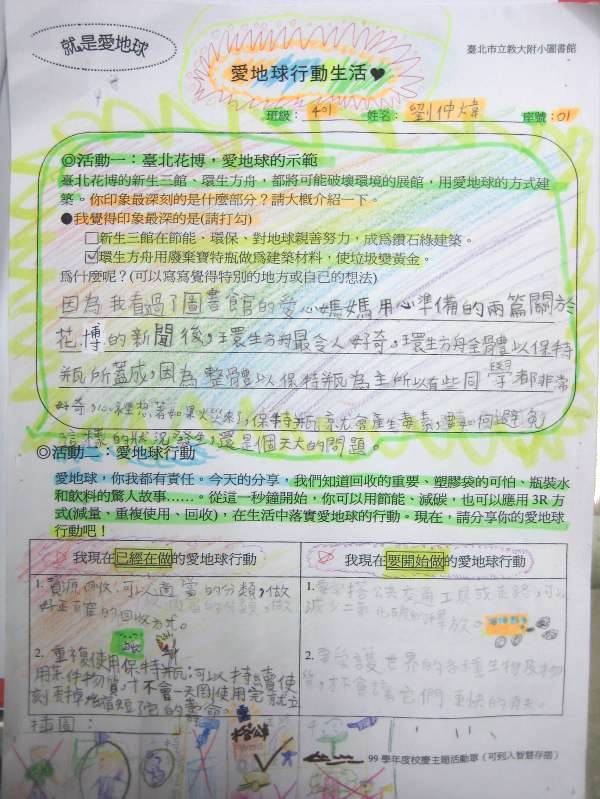 就是愛地球
臺北市立教大附小圖書館
愛地球行動生活♥
班級：401 姓名：劉仲煒 座號：01
◎活動一：臺北花博，愛地球的示範
臺北花博的新生三館、環生方舟，都將可能破壞環境的展館，用愛地球的方式建
築。你印象最深刻的是什麼部分？請大概介紹一下。
●我覺得印象最深的是(請打勾)
□新生三館在節能、環保、對地球親善努力，成為鑽石綠建築。
☑環生方舟用廢棄寶特瓶做為建築材料，使垃圾變黃金。
為什麼呢？(可以寫寫覺得特別的地方或自己的想法)
因為我看過了圖書館的愛心媽媽用心準備的兩篇關於
花博的新聞後，環生方舟最令人好奇，環生方舟全體以保特
瓶所蓋成，因為整體以保特瓶為主所以有些同學都非常
好奇，心裡想著如果火災來了，保特瓶就會產生毒素，要如何避免
這樣的狀況發生，還是個天大的問題。
◎活動二：愛地球行動
愛地球，你我都有責任。今天的分享，我們知道回收的重要、塑膠袋的可怕、瓶裝水
和飲料的驚人故事……。從這一秒鐘開始，你可以用節能、減碳，也可以應用 3R 方
式(減量、重複使用、回收)，在生活中落實愛地球的行動。現在，請分享你的愛地球
行動吧！
我現在已經在做的愛地球行動 我現在要開始做的愛地球行動
1. 資源回收：可以適當的分類，做
好正確的回收方式。
2. 重複使用保特瓶：可以持續使
用某件物質，才不會一天到使用完就立
刻丟掉
1. 搭公共交通工具或走路，可以
減少二氧化碳的釋放。
2. 要保護世界的各種生物及物
質，才不會讓它們更快的消失。
插圖：
99 學年度校慶主題活動單（可到入智慧存摺）